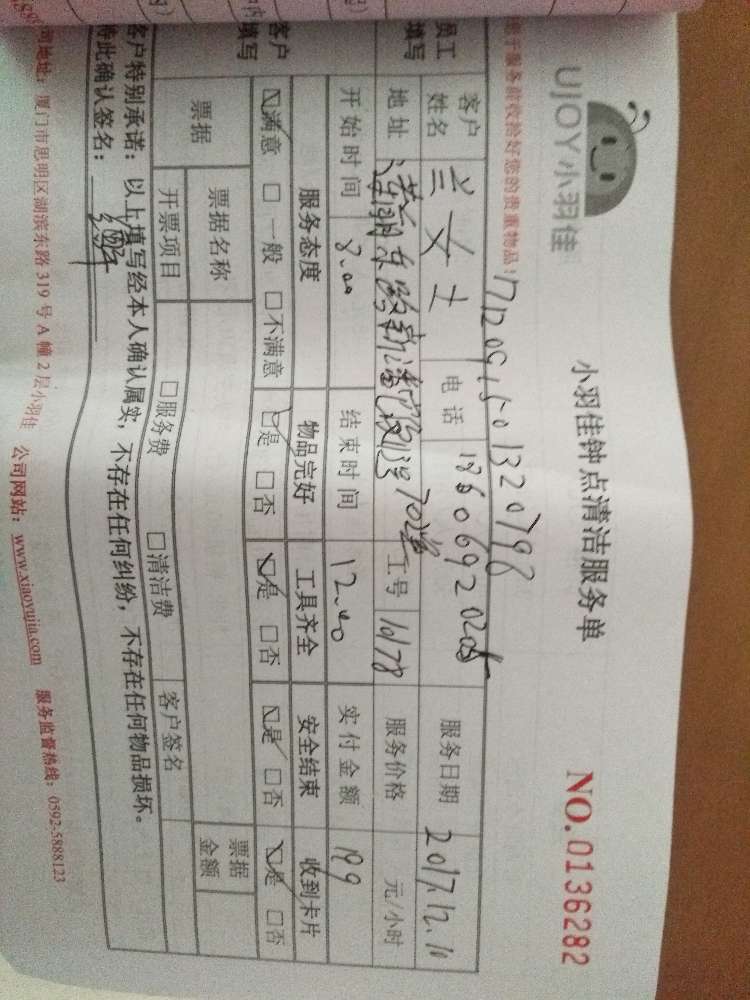 UJOY小羽佳
小羽佳钟点清洁服务单
NO.0136282
服务前收拾好您的贵重物品!
1712091501320798
员工填写
客户姓名 兰女士 电话 18606920205 服务日期 2017.12.10
地址 莲湖东路 702 工号 10178 服务价格 元/小时
开始时间 8.00 结束时间 12.00 实付金额 199
客户填写
服务态度 物品完好 工具齐全 安全结束 收到卡片
☑满意 □一般 □不满意 ☑是 □否 ☑是 □否 ☑是 □否 ☑是 □否
票据 票据名称 票据金额
开票项目 □服务费 □清洁费 客户签名
客户特别承诺:以上填写经本人确认属实,不存在任何纠纷,不存在任何物品损坏。
特此确认签名:
公司地址:厦门市思明区湖滨东路319号A幢2层小羽佳 公司网站:www.xiaoyujia.com 服务监督热线:0592-5888123